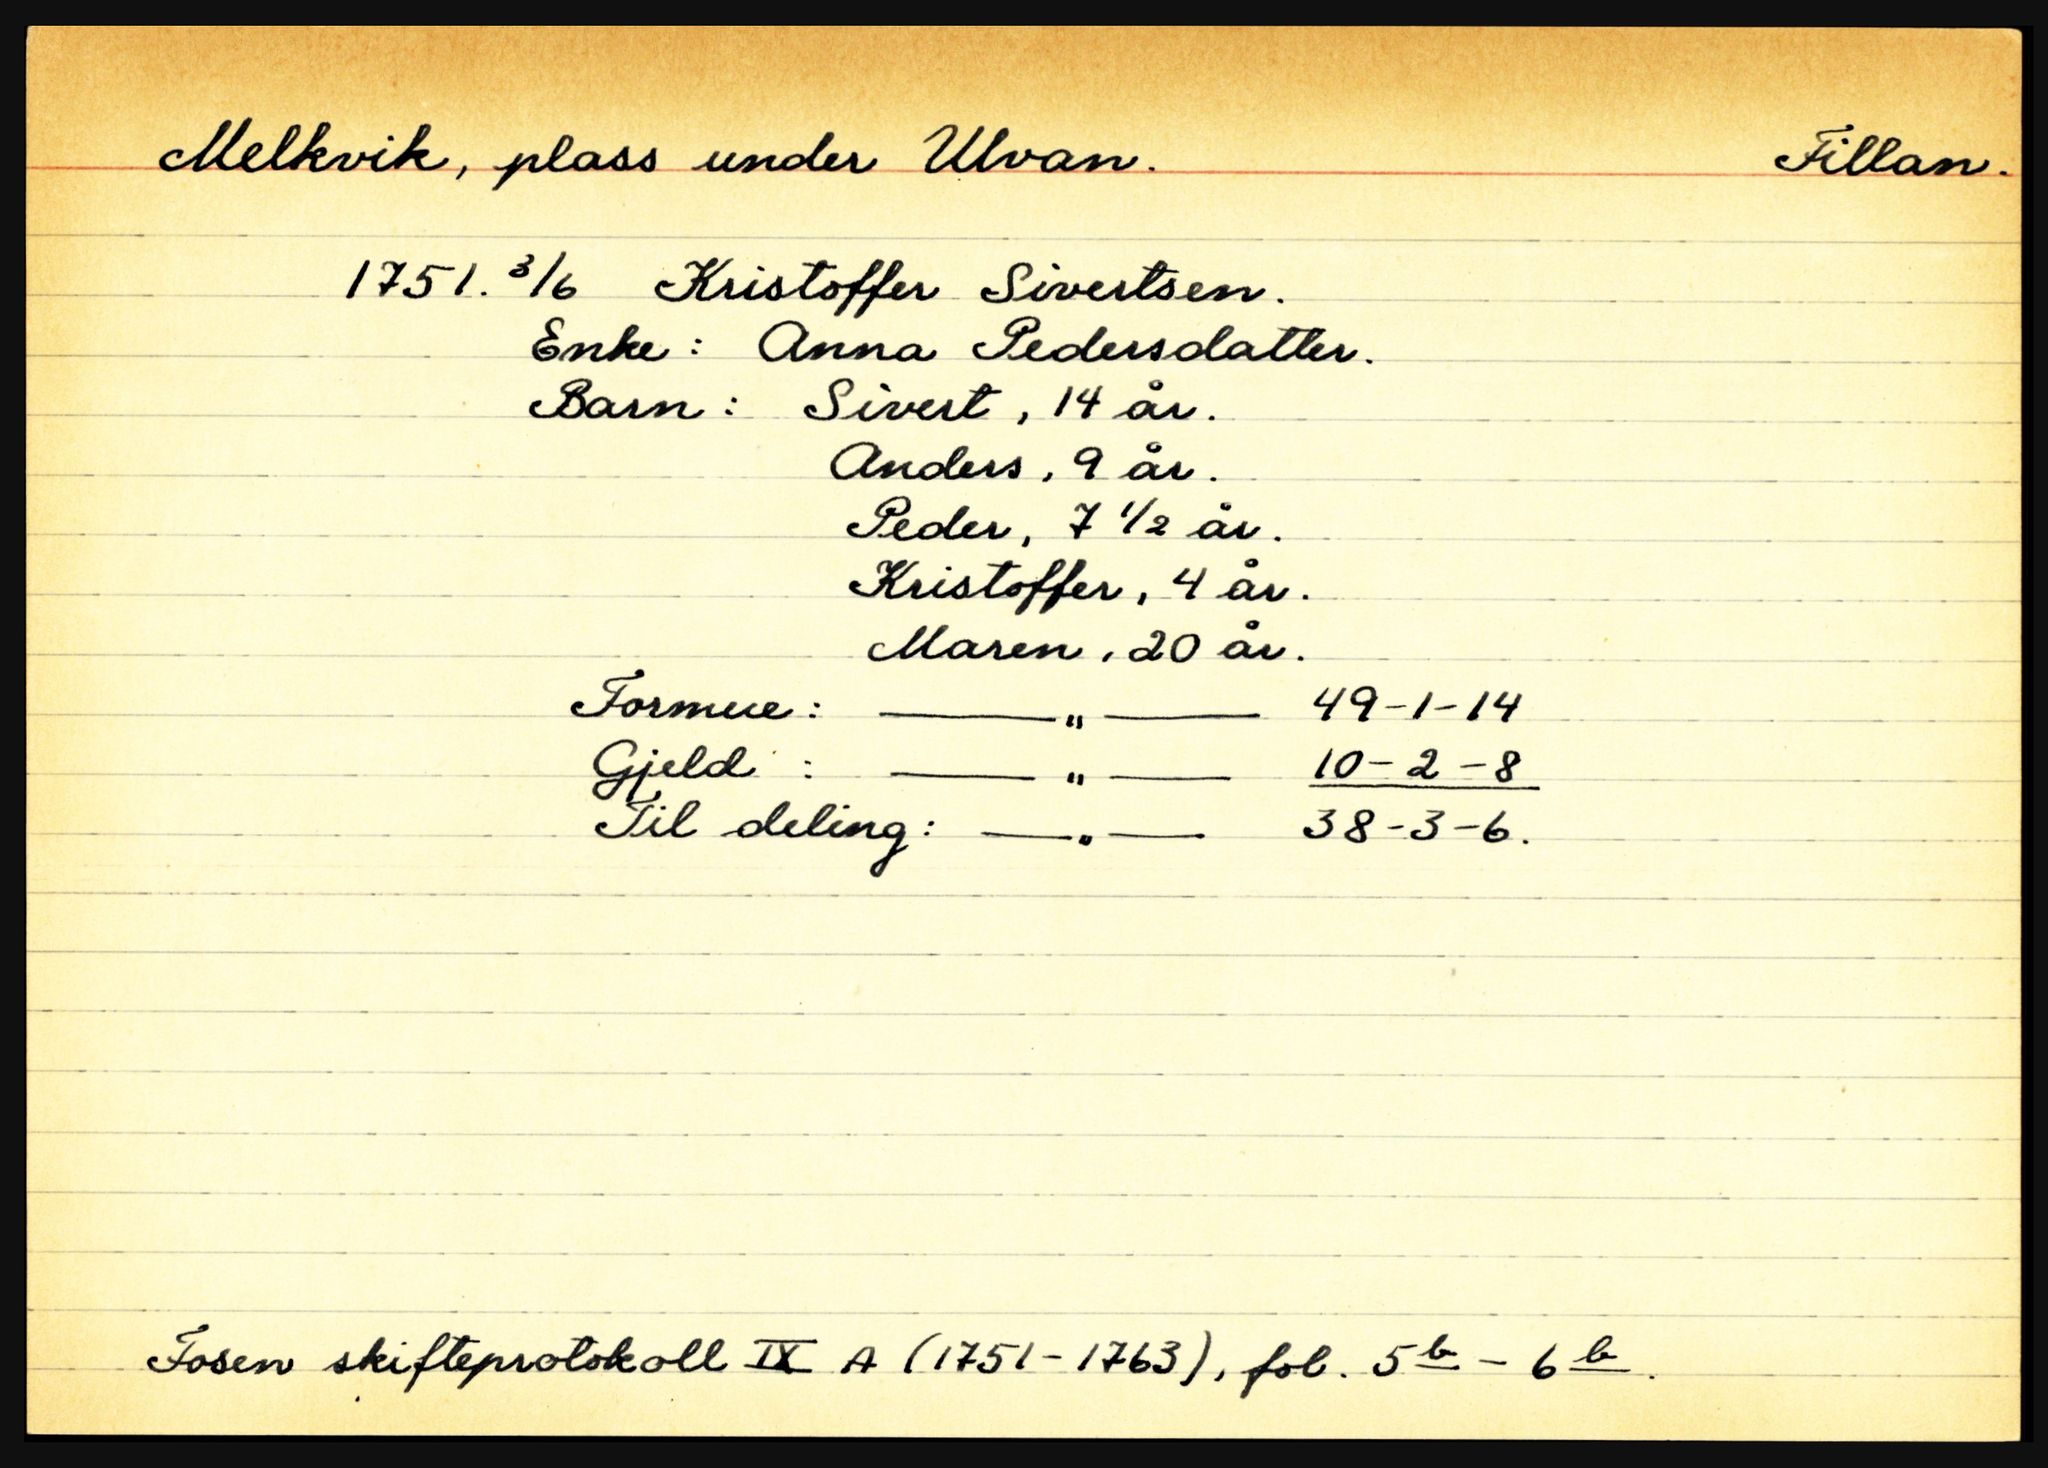 Melkvik, plass under Ulvan. Fillan.
1751. 3/6 Kristoffer Sivertsen.
Enke: Anna Pedersdatter.
Barn: Sivert, 14 år.
Anders, 9 år.
Peder, 7 1/2 år.
Kristoffer, 4 år.
Maren, 20 år.
Formue: —— " —— 49-1-14
Gjeld: —— " —— 10-2-8
Til deling: —— " —— 38-3-6.
Fosen skifteprotokoll IX A (1751-1763), fol. 5b - 6b.